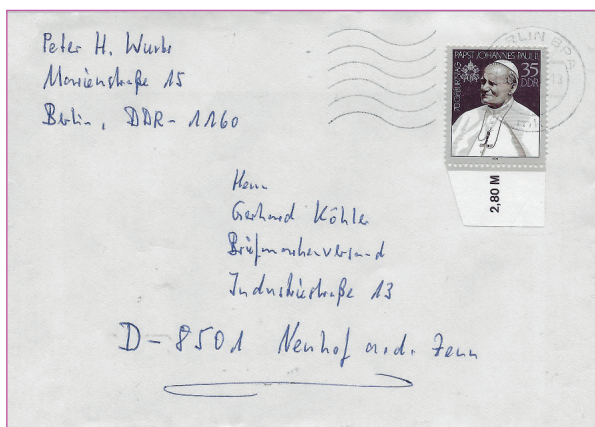 Peter H. Wurbs
Marienstraße 15
Berlin, DDR-1160
BERLIN BPA
PAPST JOHANNES PAUL II.
70. GEBURTSTAG
35
DDR
2,80 M
Herrn
Gerhard Köhler
Briefmarkenversand
Industriestraße 13
D-8501 Neuhof a.d. Zenn